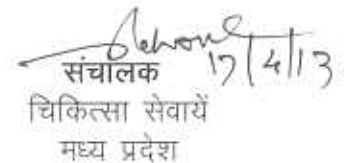 17/4/13
संचालक
चिकित्सा सेवायें
मध्य प्रदेश